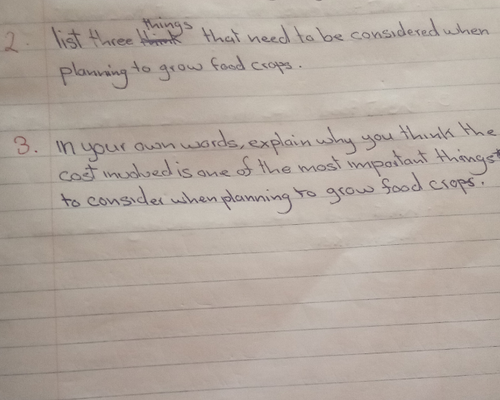 things
2. list three think that need to be considered when
planning to grow food crops.
3. In your own words, explain why you think the
cost involved is one of the most important things
to consider when planning to grow food crops.